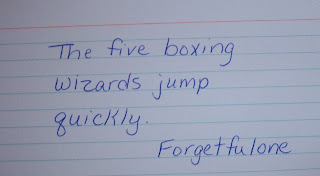 The five boxing
wizards jump
quickly.
Forgetfulone